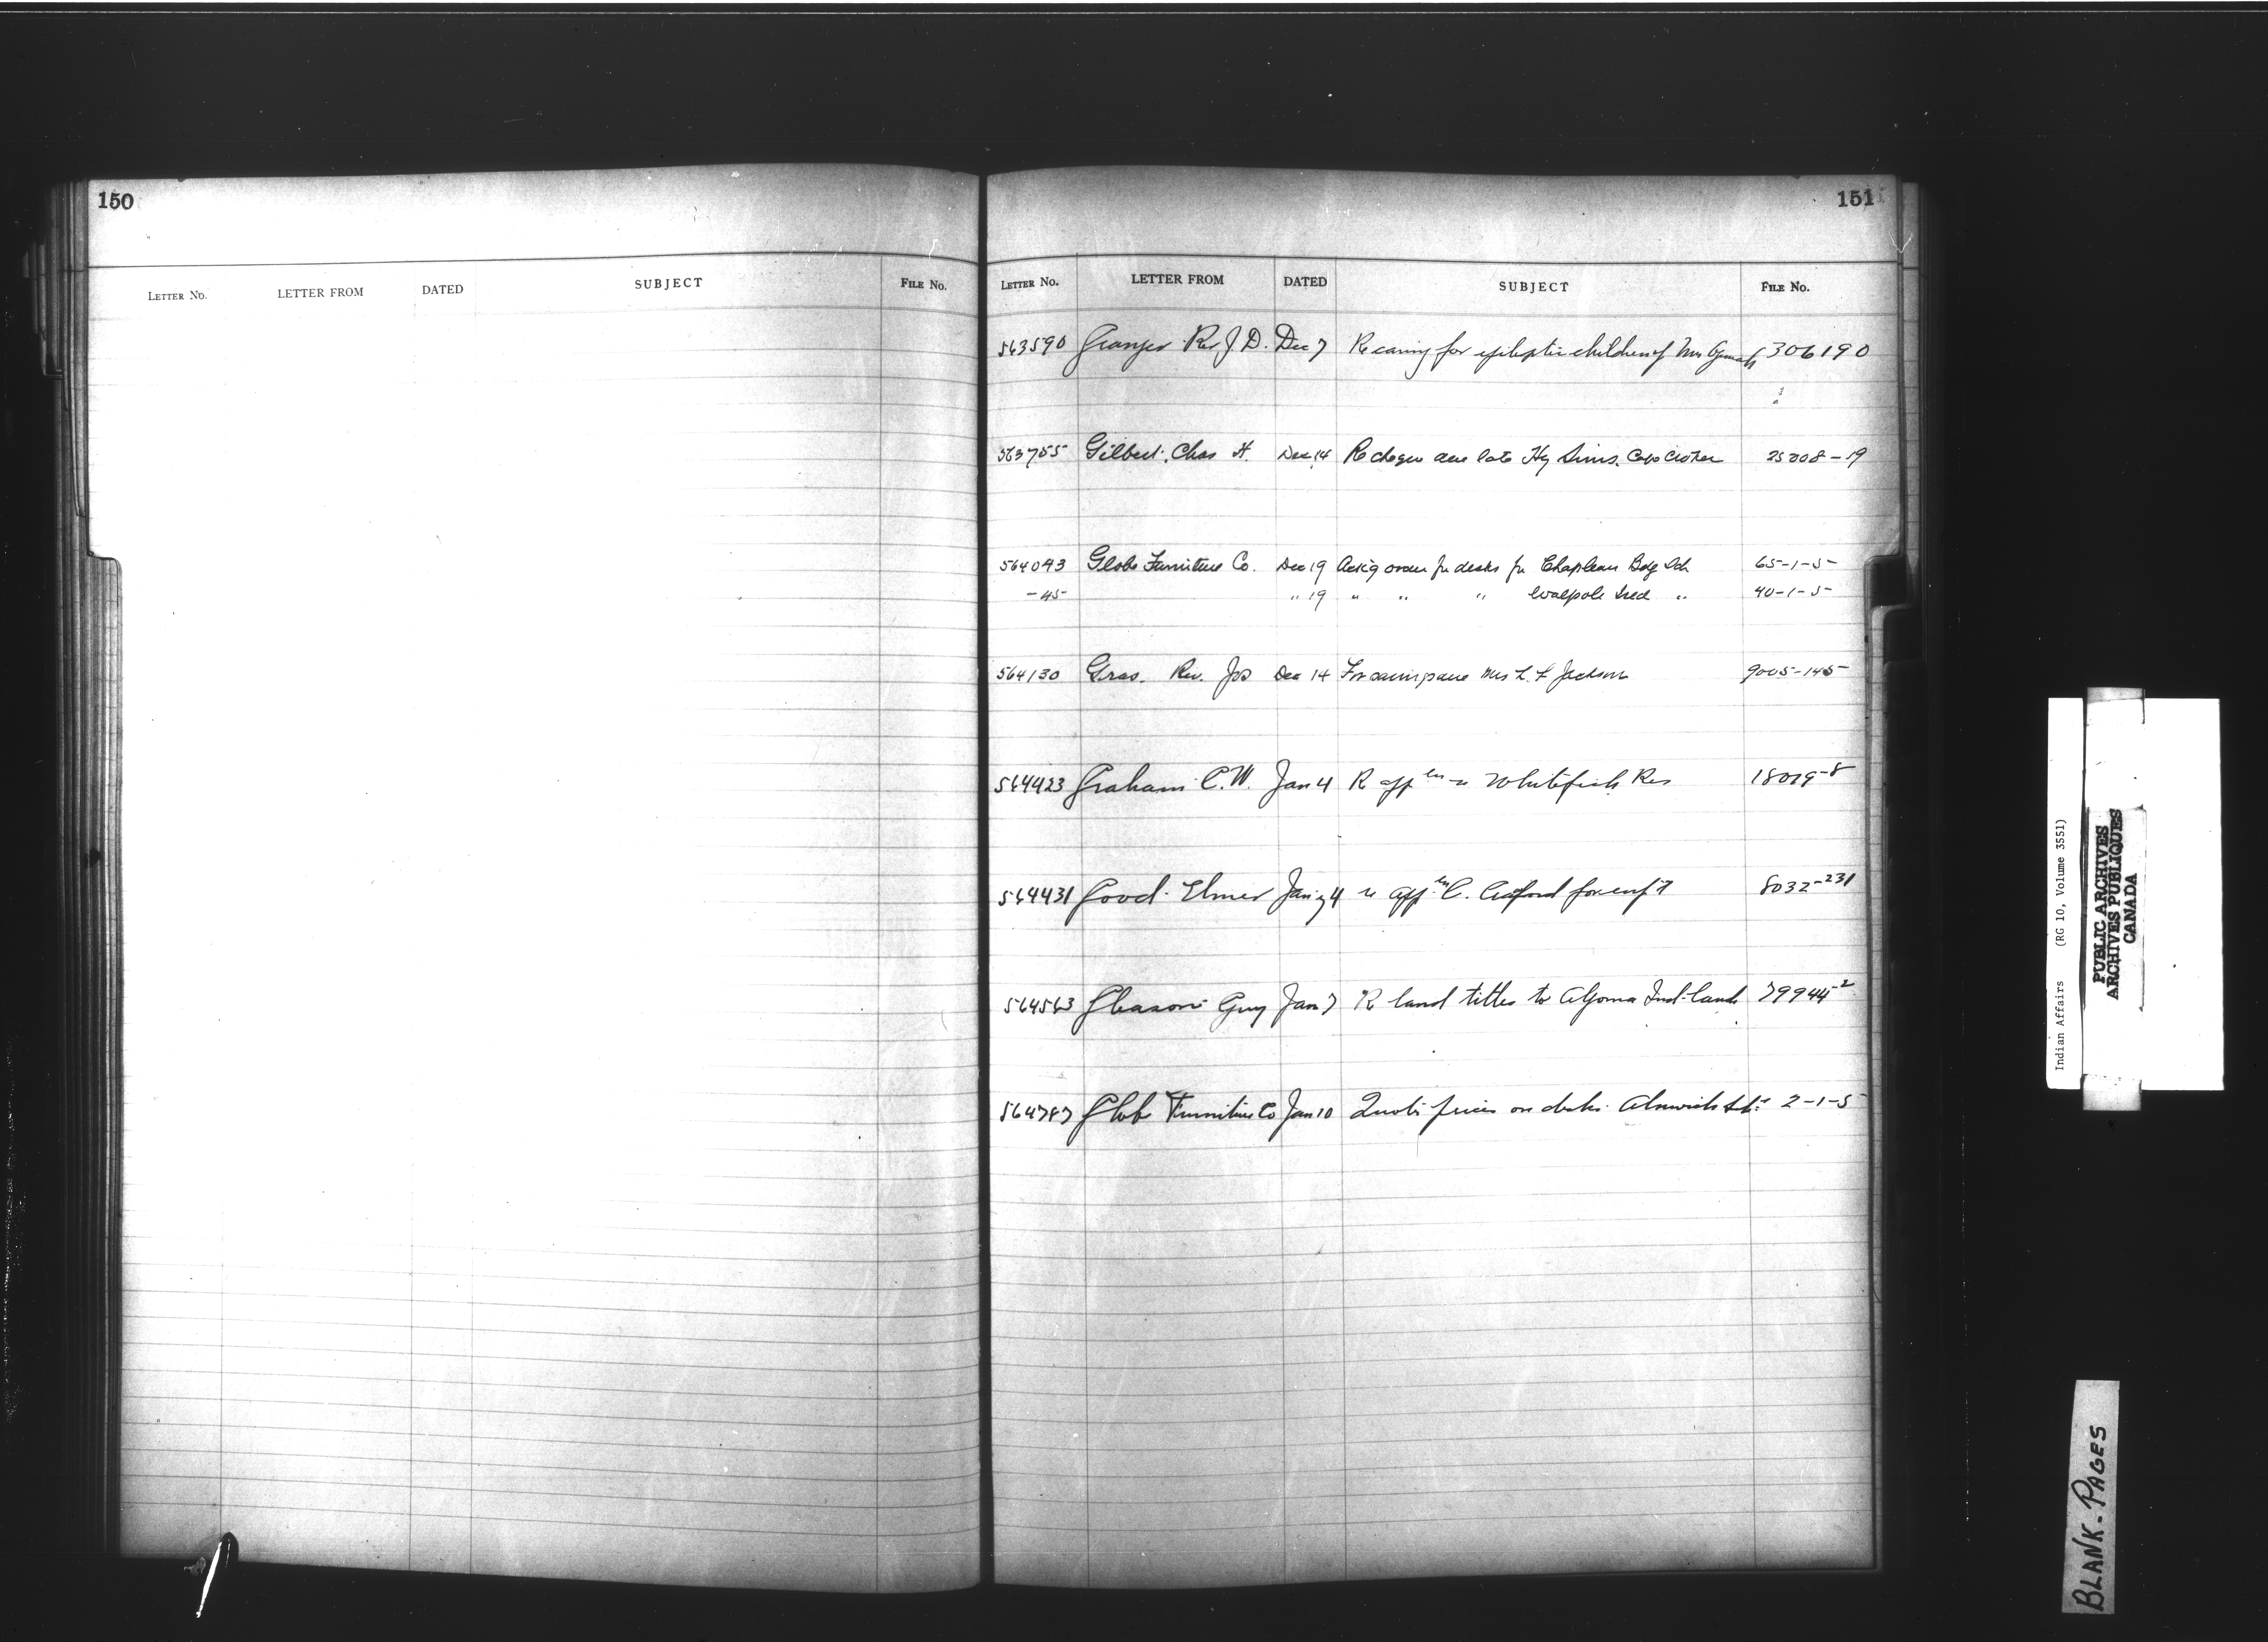 150
LETTER No. LETTER FROM DATED SUBJECT FILE No.
151
LETTER No. LETTER FROM DATED SUBJECT FILE No.
563590 Granger Rev J. D. Dec 7 Re caring for epileptic children of Mrs 306190
563755 Gilbert, Chas H. Dec 14 Re cheque late Hy Sims. Cape Croker 25008-19
564043 Globe Furniture Co. Dec 19 Ack'g order for desks for Chapleau Bdg Sch 65-1-5
-45 " 19 " " " Walpole Isld " 40-1-5
564130 Gras. Rev. Jos Dec 14 Mrs L. F Jackson 9005-145
564423 Graham C.W. Jan 4 R app Whitefish Res 18019-8
564431 Good Elmer Jany 4 re app C. for enf't 8032-231
564563 Gleason Guy Jan 7 R land titles to Algoma Ind-lands 79944-2
564787 Globe Furniture Co Jan 10 Quote prices on desks Alnwick Sch 2-1-5
Indian Affairs (RG 10, Volume 3551)
PUBLIC ARCHIVES
ARCHIVES PUBLIQUES
CANADA
BLANK. PAGES